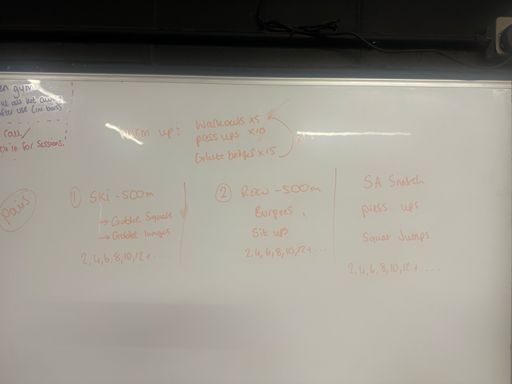 en gum
after use (inc bars)
call/
for sessions.
warm up: Walkouts x5
press ups x10
Glute bridges x15
pairs
① Ski - 500m
→ Goblet Squats
→ Goblet lunges
2,4,6,8,10,12+ ...
② Row - 500m
Burpees
Sit ups
2,4,6,8,10,12+ ...
SA Snatch
press ups
Squat Jumps
2,4,6,8,10,12+ ....